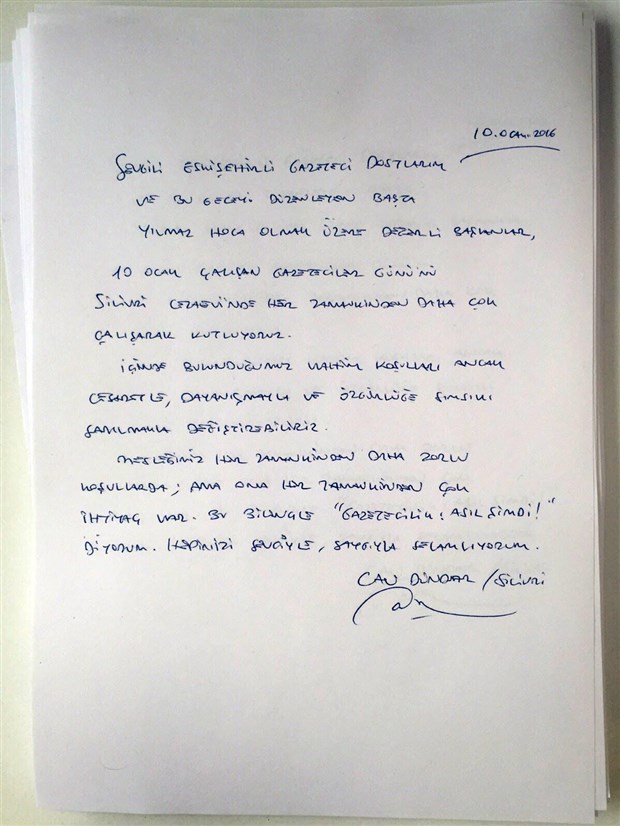 10.Ocak.2016
Sevgili Eskişehirli Gazeteci Dostlarım
ve bu geceyi düzenleyen başta
Yılmaz Hoca olmak üzere değerli başkanlar,
10 Ocak Çalışan Gazeteciler Gününü
Silivri Cezaevinde her zamankinden daha çok
çalışarak kutluyoruz.
İçinde bulunduğumuz vahim koşulları ancak
cesaretle, dayanışmayla ve özgürlüğe sımsıkı
sarılmakla değiştirebiliriz.
Mesleğimiz her zamankinden daha zorlu
koşullarda; ama ona her zamankinden çok
ihtiyaç var. Bu bilinçle "Gazetecilik: Asıl Şimdi!"
diyorum. Hepinizi sevgiyle, saygıyla selamlıyorum.
Can Dündar / Silivri